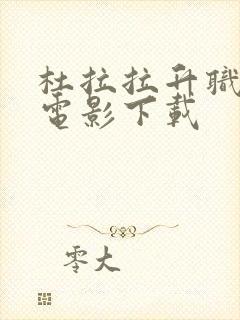 杜拉拉升職
電影下載
零大